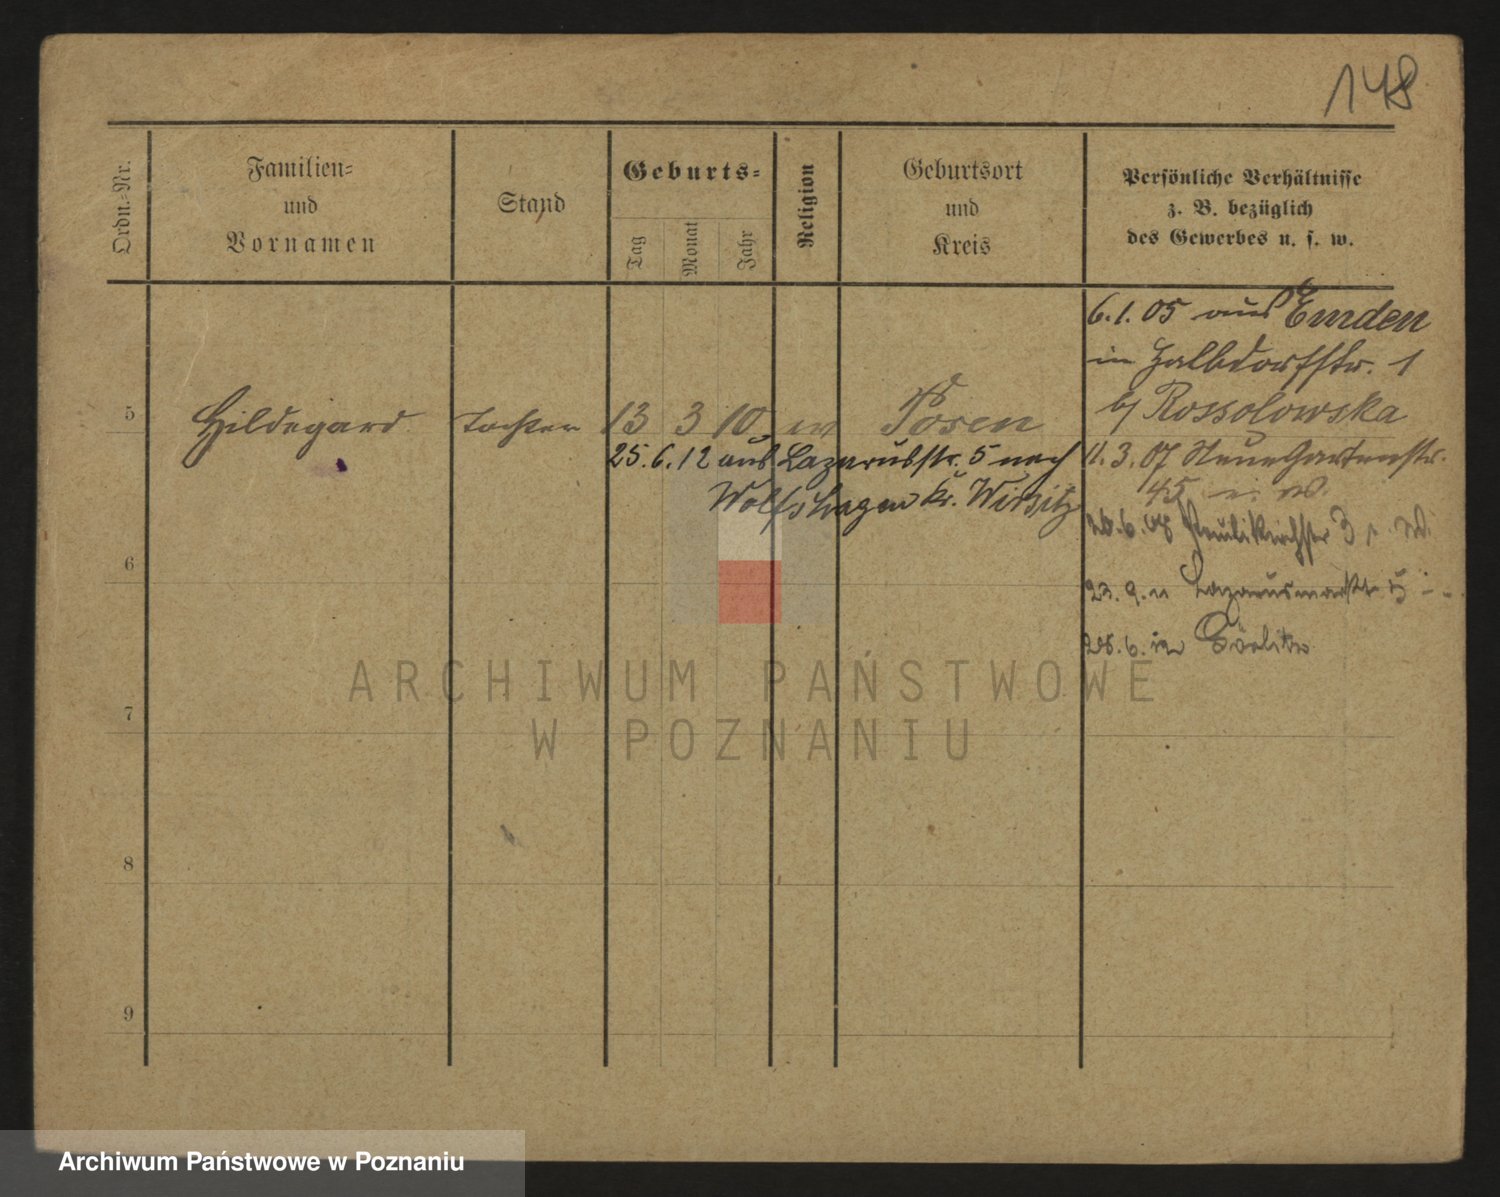 148
Ordn.-Nr.
Familien-
und
Vornamen
Stand
Geburts-
Tag
Monat
Jahr
Religion
Geburtsort
und
Kreis
Persönliche Verhältnisse
z. B. bezüglich
des Gewerbes u. s. w.
6.1.05 aus Emden
in Halbdorfstr. 1
b/ Rossolowska
5 Hildegard Tochter 13 3 10 ev Posen
25.6.12 aus Lazarusstr. 5 nach
Wolfshagen Kr. Wirsitz
11.3.07 Neue Gartenstr.
45
26.6.08 Paulikirchstr 3
6
23.9.11 Lazarusmarkt 5
28.6.12
7
8
9
ARCHIWUM PAŃSTWOWE
W POZNANIU
Archiwum Państwowe w Poznaniu